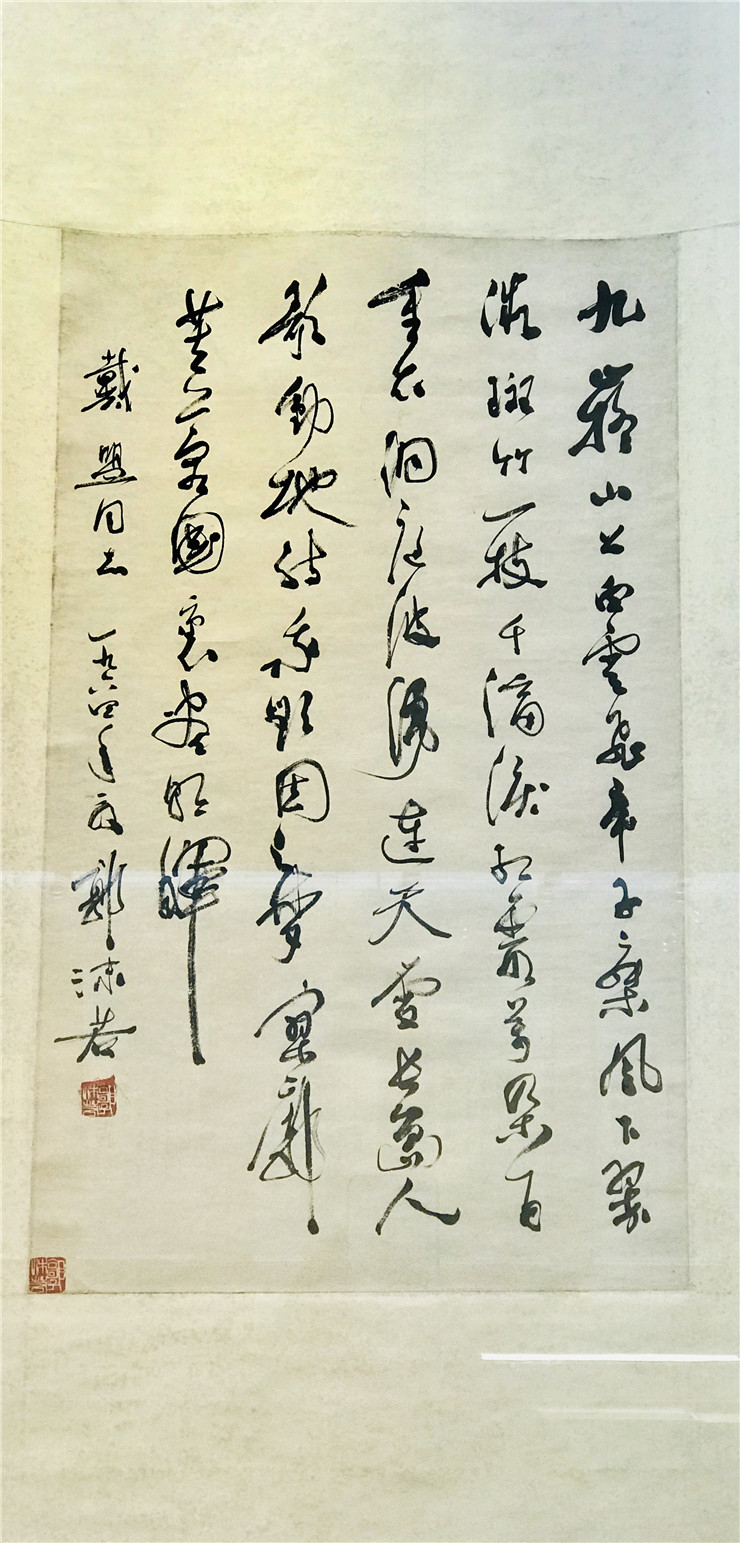 九嶷山上白雲飛帝子乘風下翠
微斑竹一枝千滴淚紅霞萬朵百
重衣洞庭波湧連天雪長島人
歌動地詩我欲因之夢寥廓
芙蓉國裏盡朝暉
戴盟同志 一九六四年夏 郭沫若
郭沫若
郭沫若